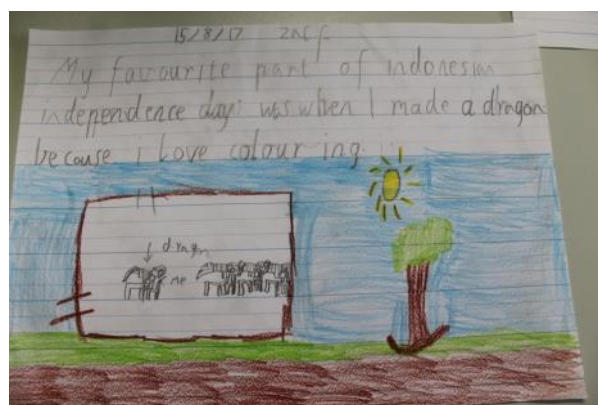 15/8/17
My favourite part of indonesian
independence day: was when I made a dragon
because i love colouring.
dragon
me